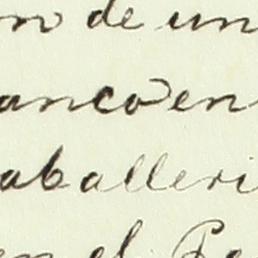 n de un
anco en
aballeri
en el Pe